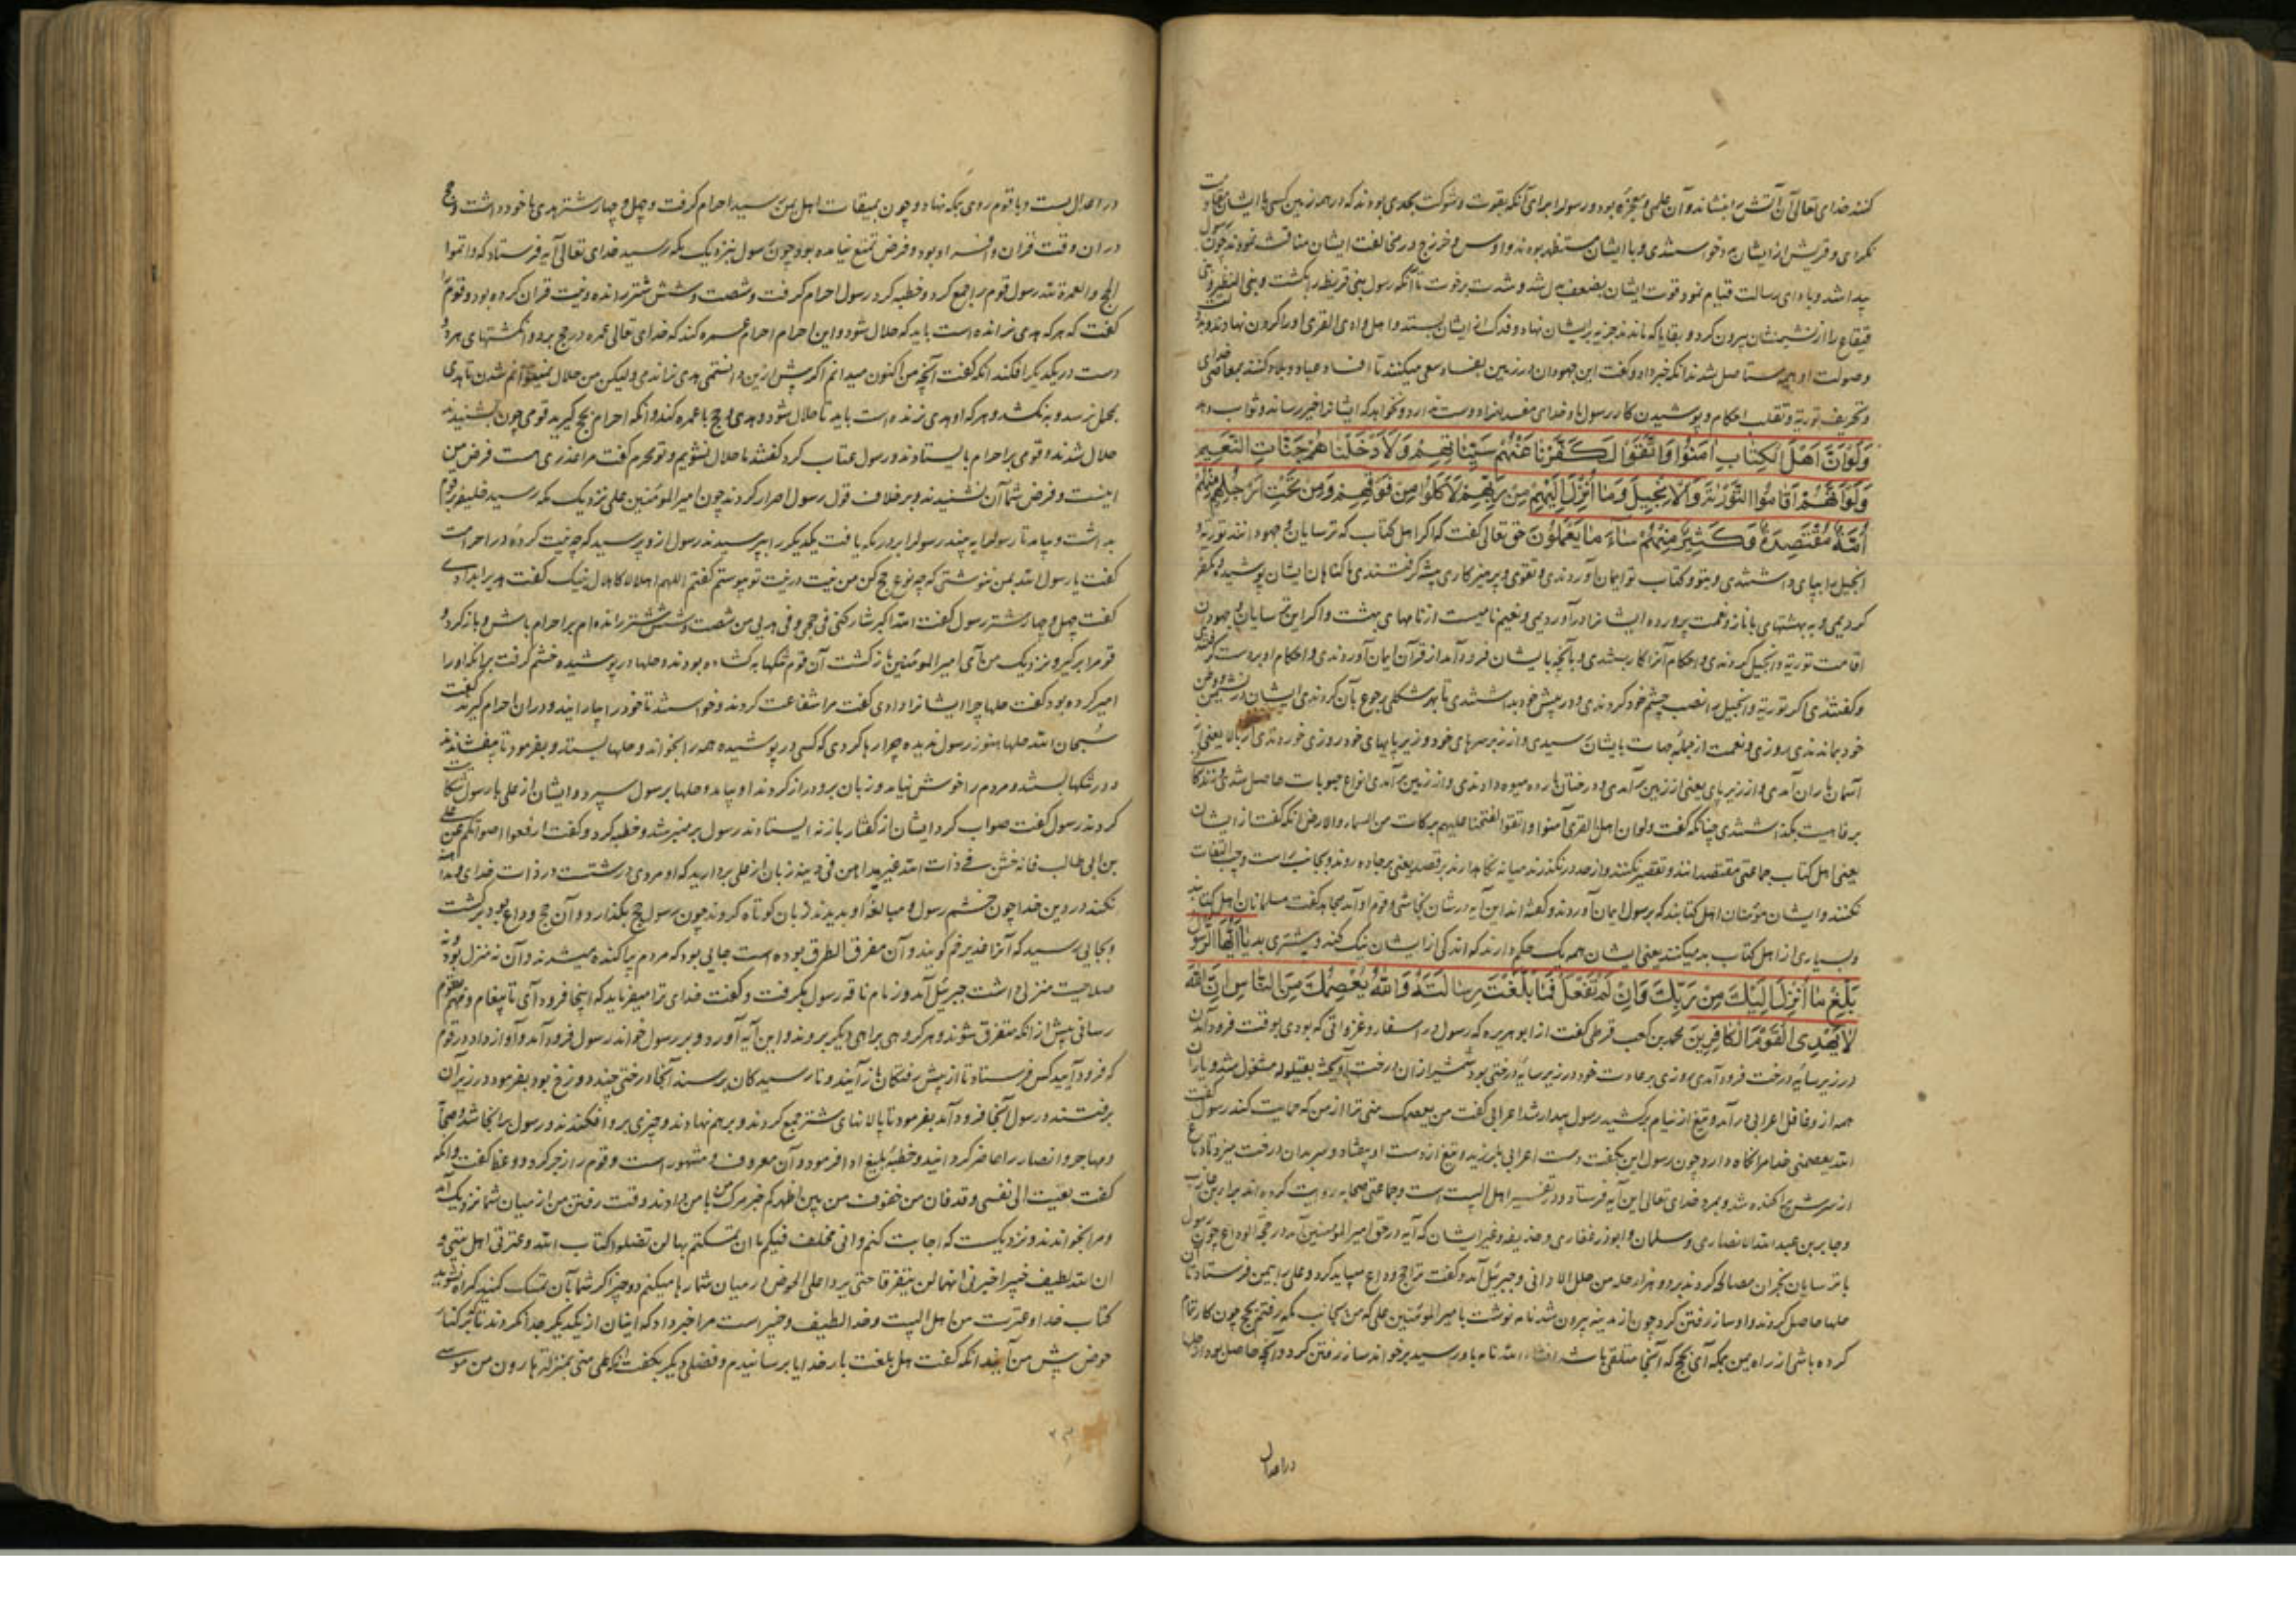 کنند خدای تعالی آن آتش را بنشاند و آن علمی و معجزه بود و رسول را برای آنکه بقوت و شوکت بحدی بودند که در همه زمین کسی با ایشان مقاومت
نکردی و قریش از ایشان مدد خواستندی و با ایشان مستظهر بودند و اوس و خزرج در مخالفت ایشان مناقشت نمودند چون رسول
پیدا شد و بادای رسالت قیام نمود قوت ایشان بضعف بدل شد و شدت برخوت تا آنکه رسول بنی قریظه را بکشت و بنی النظیر و بنی
قینقاع را از نشیمنشان بیرون کرد و بقایا که ماندند جزیه بر ایشان نهاد و فدک از ایشان بستد و اهل وادی القری او را گردن نهادند
وصولت او همه مستاصل شدند آنکه خبر داد و گفت این جهودان در زمین بفساد سعی میکنند تا افساد عباد و بلاد کنند بمعاصی خدای
و تحریف توریة و تقلب احکام و پوشیدن کار رسول و خدای مفسدانرا دوست ندارد و نخواهد که ایشانرا خیر رساند و ثواب دهد
وَلَوْ اَنَّ اَهْلَ الْكِتَابِ اٰمَنُوا وَاتَّقَوْا لَكَفَّرْنَا عَنْهُمْ سَيِّئَاتِهِمْ وَلَاَدْخَلْنَاهُمْ جَنَّاتِ النَّعِيمِ
وَلَوْ اَنَّهُمْ اَقَامُوا التَّوْرٰيةَ وَالْاِنْجِيلَ وَمَا اُنْزِلَ اِلَيْهِمْ مِنْ رَبِّهِمْ لَاَكَلُوا مِنْ فَوْقِهِمْ وَمِنْ تَحْتِ اَرْجُلِهِمْ مِنْهُمْ
اُمَّةٌ مُقْتَصِدَةٌ وَكَثِيرٌ مِنْهُمْ سَاءَ مَا يَعْمَلُونَ حق تعالی گفت که اگر اهل کتاب که ترسایان و جهودانند توریة و
انجیل را بپای داشتندی و بتو و کتاب تو ایمان آوردندی و تقوی و پرهیزکاری پیشه گرفتندی ما گناهان ایشان پوشیده و مکفر
کردیمی و به بهشتهای با ناز و نعمت پرورده ایشانرا درآوردیمی و نعیم نامیست از نامهای بهشت و اگر این ترسایان و جهودان
اقامت توریة و انجیل کردندی و احکام آنرا کار بستندی و بآنچه بایشان فرود آمد از قرآن ایمان آوردندی و احکام او بدست گرفتندی
و گفتندی اگر توریة و انجیل را نصب چشم خود کردندی و در پیش خود بداشتندی تا بهر مشکلی رجوع بآن کردندی ایشان در نشیمن و وطن
خود بماندندی و روزی و نعمت از جمله جهات بایشان رسیدی و از زبر سرهای خود و زیر پایهای خود روزی خوردندی از بالا یعنی از
آسمان باران آمدی و از زیر پای یعنی از زمین برآمدی و درختان بارده میوه دادندی و از زمین برآمدی انواع حبوبات حاصل شدی و زندگانی
برفاهیت بگذاشتندی چنانکه گفت ولو ان اهل القری آمنوا واتقوا لفتحنا علیهم برکات من السماء والارض آنکه گفت از ایشان
یعنی اهل کتاب جماعتی مقتصدانند و تقصیر نکنند و از حد در نگذرند میانه نگاه دارند بر قصد یعنی بر جاده روند و بجانب راست و چپ التفات
نکنند و ایشان مؤمنان اهل کتابند که برسول ایمان آوردند و گفته اند این آیه در شان نجاشی و قوم او آمد مجاهد گفت مسلمانان اهل کتابند
و بسیاری از اهل کتاب بد میکنند یعنی ایشان همه یک حکم دارند که اندکی از ایشان نیک کنند و بیشتری بد يَا اَيُّهَا الرَّسُولُ
بَلِّغْ مَا اُنْزِلَ اِلَيْكَ مِنْ رَبِّكَ وَاِنْ لَمْ تَفْعَلْ فَمَا بَلَّغْتَ رِسَالَتَهُ وَاللّٰهُ يَعْصِمُكَ مِنَ النَّاسِ اِنَّ اللّٰهَ
لَا يَهْدِى الْقَوْمَ الْكَافِرِينَ محمد بن کعب قرظی گفت از ابو هریره که رسول در اسفار و غزواتی که بودی بوقت فرود آمدن
در زیر سایه درخت فرود آمدی روزی بر عادت خود در زیر سایه درختی بود شمشیر از آن درخت آویخته بقیلوله مشغول شد و یاران
همه از و غافل اعرابی درآمد و تیغ از نیام برکشید رسول بیدار شد اعرابی گفت من یعصمک منی ترا از من که حمایت کند رسول گفت
الله یعصمنی خدا مرا نگاه دارد چون رسول این بگفت دست اعرابی بلرزید و تیغ از دست او بیفتاد و سر بدان درخت میزد تا دماغ
از سرش پراکنده شد و بمرد خدای تعالی این آیه فرستاد و در تفسیر اهل البیت است و جماعتی صحابه روایت کرده اند براء بن عازب
و جابر بن عبد الله الانصاری و سلمان و ابوذر غفاری و حذیفه و غیر ایشان که آیه در حق امیر المؤمنین آمد در حجة الوداع چون رسول
با ترسایان نجران مصالحه کردند بر دو هزار حله من حلل الاواقی و جبرئیل آمد و گفت ترا حج وداع میباید کرد و علی را بیمن فرستاد تا آن
حلها حاصل کردند و او ساز رفتن کرد چون از مدینه بیرون شد نامه نوشت بامیر المؤمنین علی که من بجانب مکه رفتم بحج چون کار تمام
کرده باشی از راه یمن بمکه آی بحج که آنجا متلقی باشد انشاء الله نامه باو رسید برخواند ساز رفتن کرد و آنچه حاصل بود از حلها
در اعدال
در اعدال بست و با قوم روی بمکه نهاد و چون بمیقات اهل یمن رسید احرام گرفت و چهل و چهار شتر هدی با خود داشت و حج
در آن وقت قران و افراد بود و فرض تمتع نیامده بود چون رسول نیز نزدیک مکه رسید خدای تعالی آیه فرستاد که و اتموا
الحج والعمرة لله رسول قوم را جمع کرد و خطبه کرد رسول احرام گرفت و شصت و شش شتر رانده و نیت قران کرده بود و قوم را
گفت که هر که هدی نرانده است باید که حلال شود و این احرام احرام عمره کند که خدای تعالی عمره در حج برد و انگشتهای هر دو
دست در یکدیگر افکند آنکه گفت آنچه من اکنون میدانم اگر پیش ازین دانستمی هدی نراندمی و لیکن من حلال نمیتوانم شدن تا هدی
بمحل نرسد و بنکشد و هر که او هدی نرانده است باید تا حلال شود و هدی و حج با عمره کند و آنکه احرام بحج گیرید قومی چون بشنیدند
حلال شدند و قومی بر احرام بایستادند و رسول عتاب کرد گفتند ما حلال نشویم و تو محرم گفت مرا عذری هست فرض من
اینست و فرض شما آن نشنیدند و بر خلاف قول رسول اصرار کردند چون امیر المؤمنین علی نزدیک مکه رسید خلیفه بر قوم
بداشت و بیامد تا رسول را به بیند رسول را بر در مکه یافت یکدیگر را بپرسیدند رسول ازو پرسید که چه نیت کرده در احرامت
گفت یا رسول الله بمن ننوشتی که چه نوع حج کن من نیت در نیت تو پیوستم گفتم اللهم اهلالا کاهلال نبیک گفت هدیرا براندی
گفت چهل و چهار شتر رسول گفت الله اکبر شارکتنی فی حجی و فی هدیی من شصت و شش شتر رانده ام بر احرام باش و باز گرد و
قوم را برگیر و نزدیک من آی امیر المؤمنین باز گشت آن قوم تنگها بگشاده بودند و حلها در پوشیده خشم گرفت بر آنکه او را
امیر کرده بود گفت حلها چرا ایشانرا دادی گفت مرا شفاعت کردند و خواستند تا خود را بیارایند و در آن احرام گیرند گفت
سبحان الله حلها هنوز رسول ندیده چرا رها کردی که کسی در پوشیده همه را بخواند و حلها بستد و بفرمود تا بیفشاندند
و در تنگها بستند و مردم را خوش نیامد و زبان برو دراز کردند او بیامد و حلها برسول سپرد و ایشان از علی با رسول شکایت
کردند رسول گفت صواب کرد ایشان از گفتار باز نه ایستادند رسول بر منبر شد و خطبه کرد و گفت ارفعوا اصواتکم عن علی
بن ابی طالب فانه خشن فی ذات الله غیر مداهن فی دینه زبان از علی بردارید که او مردی درشتست در ذات خدای و مداهنه
نکند در دین خدا چون خشم رسول و مبالغه او بدیدند زبان کوتاه کردند چون رسول حج بگذارد و آن حج وداع بود برگشت
و بجایی رسید که آنرا غدیر خم گویند و آن مفرق الطرق بوده است جایی بود که مردم پراکنده میشدند و آن نه منزل بود و نه
صلاحیت منزل داشت جبرئیل آمد و زمام ناقه رسول بگرفت و گفت خدای ترا میفرماید که اینجا فرود آی تا پیغام و فهم بقوم
رسانی پیش از آنکه متفرق شوند و هر گروهی براهی دیگر بروند و این آیه آورد و بر رسول خواند رسول فرود آمد و آواز داد در قوم
که فرود آیید کس فرستاد تا از پیش رفتگان باز آیند و تا رسیدگان برسند آنجا درختی چند دوزخ بود بفرمود در زیر آن
برفتند و رسول آنجا فرود آمد بفرمود تا پالانهای شتر جمع کردند و بر هم نهادند و چیزی برو افکندند و رسول بر آنجا شد و صحابه
و مهاجر و انصار را حاضر گردانید و خطبه بلیغ ادا فرمود و آن معروف و مشهور است و قوم را زجر کرد و وعظ گفت و آنکه
گفت نعیت الی نفسی و قد حان من خفوف من بین اظهرکم خبر مرگ من با من دادند و وقت رفتن من از میان شما نزدیک آمد
و مرا بخواندند و نزدیکست که اجابت کنم و انی مخلف فیکم ما ان تمسکتم بها لن تضلوا کتاب الله و عترتی اهل بیتی و
ان اللطیف الخبیر اخبرنی انهما لن یتفرقا حتی یردا علی الحوض در میان شما رها میکنم دو چیز اگر شما بآن تمسک کنید گمراه نشوید
کتاب خدا و عترت من اهل البیت و خدا لطیف و خبیر است مرا خبر داد که اینان از یکدیگر جدا نگردند تا بر کنار
حوض پیش من آیند آنکه گفت هل بلغت بار خدایا برسانیدم و فصلی دیگر بگفت آنکه علی منی بمنزلة هارون من موسی